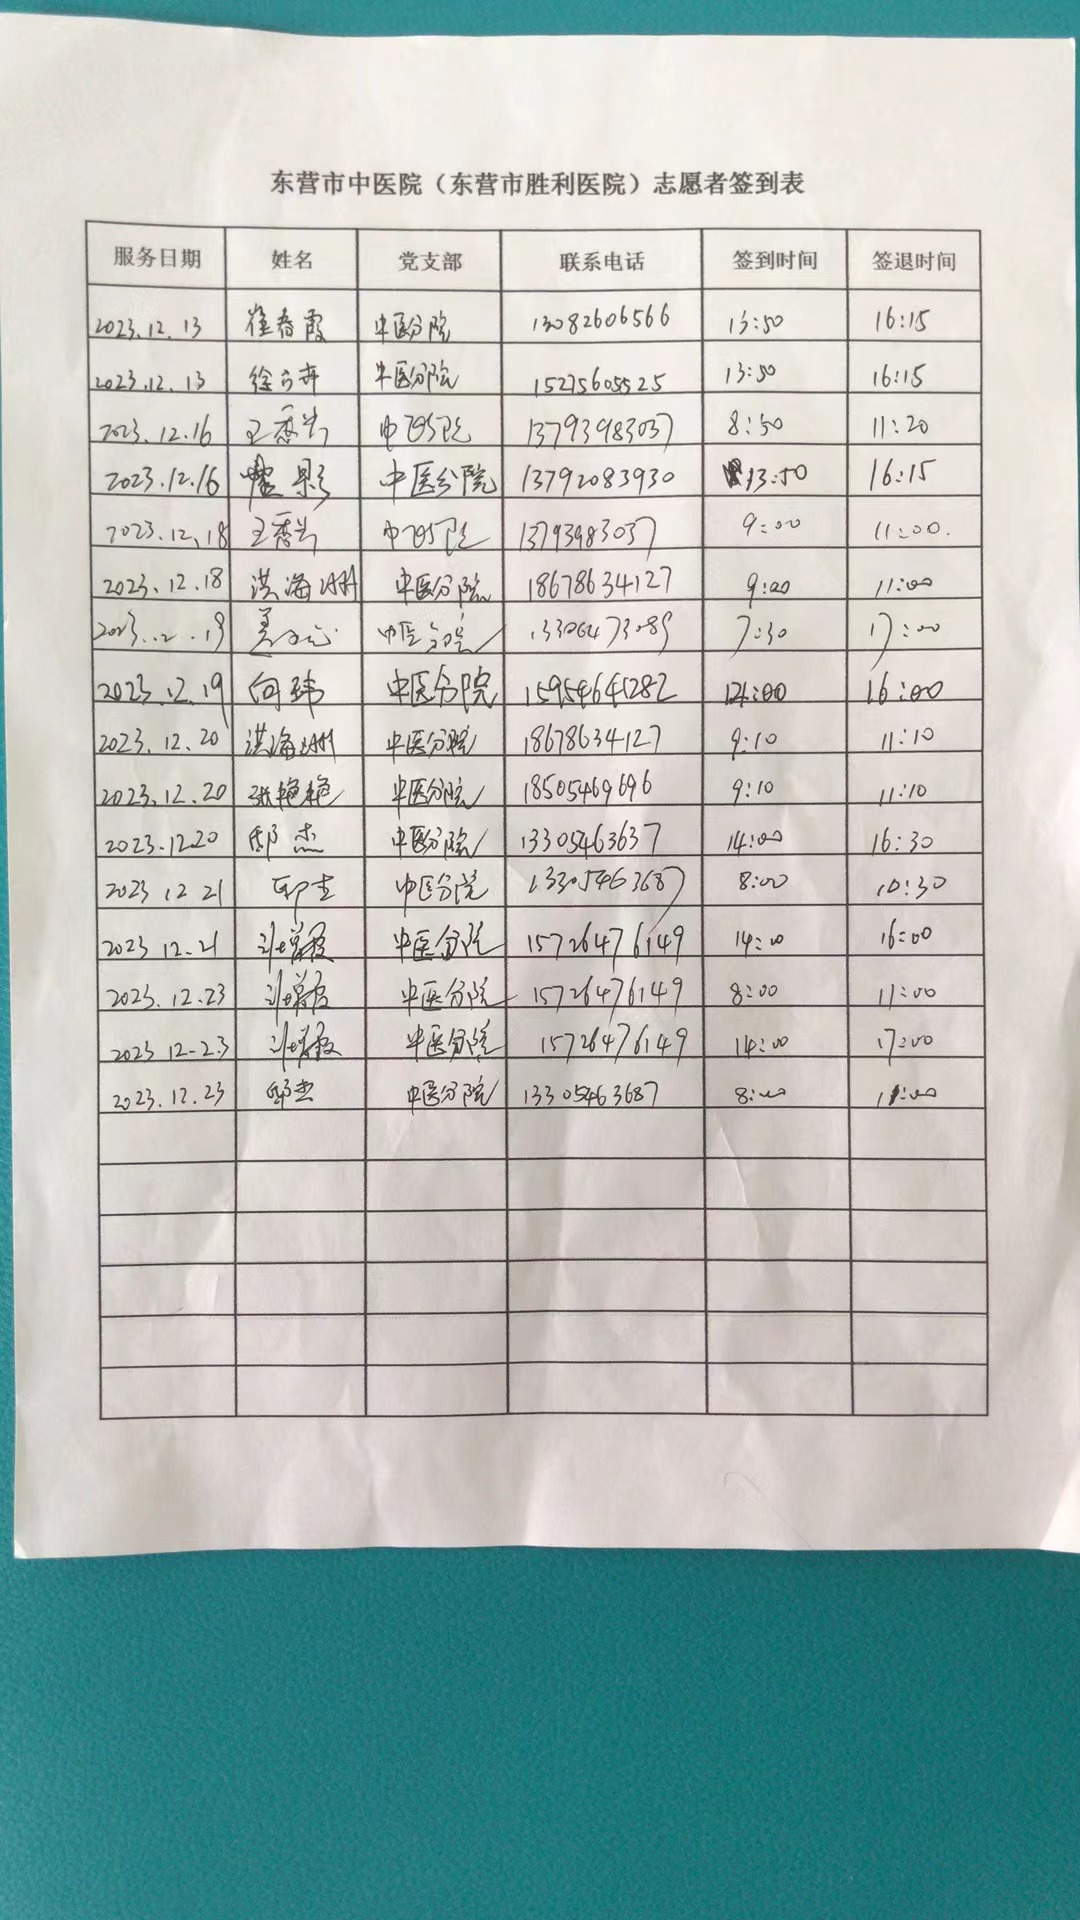 东营市中医院（东营市胜利医院）志愿者签到表
服务日期 姓名 党支部 联系电话 签到时间 签退时间
2023.12.13 崔春霞 中医分院 13082606566 13:50 16:15
2023.12.13 中医分院 15275605525 13:50 16:15
2023.12.16 中医分院 13793983037 8:50 11:20
2023.12.16 中医分院 13792083930 13:50 16:15
2023.12.18 中医分院 13793983037 9:00 11:00.
2023.12.18 洪海琳 中医分院 18678634127 9:00 11:00
中医分院 13306473089 7:30 17:00
2023.12.19 向玮 中医分院 15954641282 16:00
2023.12.20 洪海琳 中医分院 18678634127 9:10 11:10
2023.12.20 张艳艳 中医分院 18505469696 9:10 11:10
2023.12.20 杰 中医分院 14:00 16:30
2023 12 21 中医分院 13305463687 8:00 10:30
2023 12.21 中医分院 15726476149 14:00 16:00
2023.12.23 中医分院 15726476149 8:00 11:00
2023 12.23 中医分院 15726476149 14:00 17:00
2023.12.23 杰 中医分院 13305463687 8:00 11:00